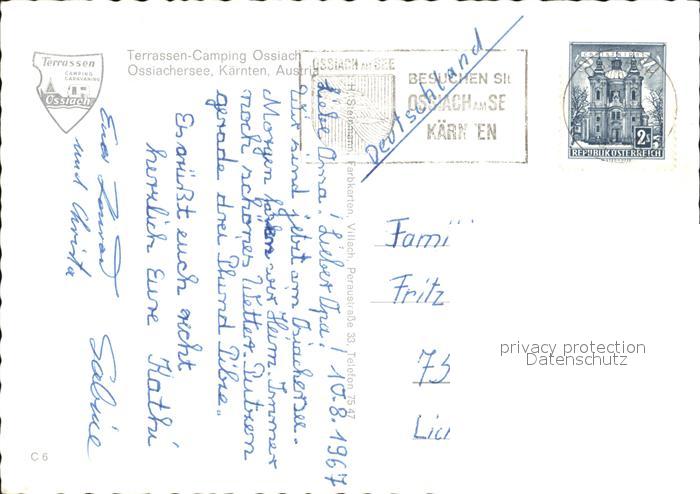 Terrassen
CAMPING
CARAVANING
Ossiach
Terrassen-Camping Ossiach
Ossiachersee, Kärnten, Austria
OSSIACH AM SEE
BESUCHEN SIE
OSSIACH AM SEE
KÄRNTEN
2.50
REPUBLIK ÖSTERREICH
Deutschland
Liebe Oma! Lieber Opa! 10.8.1967
Wir sind jetzt am Ossiachersee.
Morgen fahren wir Heim. Immer
noch schönes Wetter. Putzen
gerade drei Pfund Pilze.
Es grüßt euch recht
herzlich Eure Kathi
Euer Konrad Sabine
und Christa
Farbkarten, Villach, Peraustraße 33, Telefon 75 47
Fami
Fritz
75
privacy protection
Datenschutz
C 6